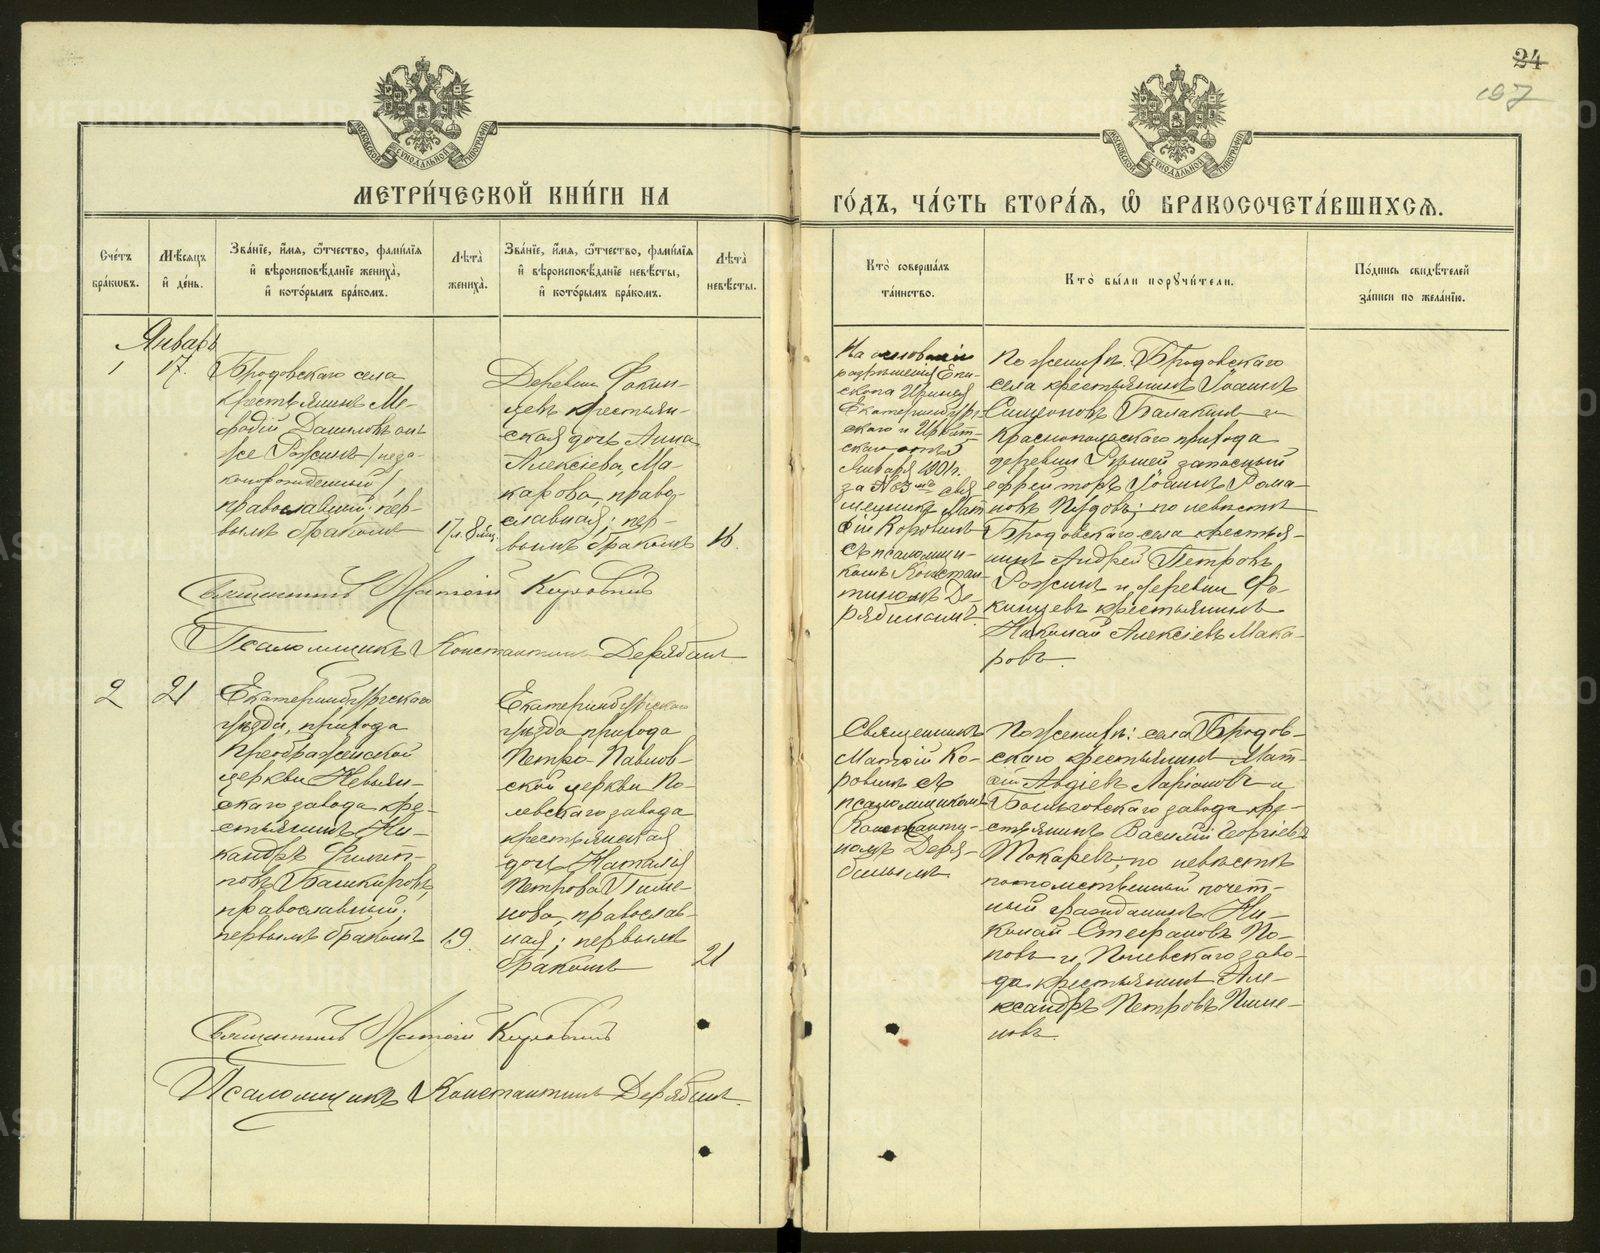 24
197
МОСКОВСКОЙ СѴНОДАЛЬНОЙ ТИПОГРАФІИ
МОСКОВСКОЙ СѴНОДАЛЬНОЙ ТИПОГРАФІИ
МЕТРИ́ЧЕСКОЙ КНИ́ГИ НА
ГО́ДЪ, ЧА́СТЬ ВТОРА́Я, Ѽ БРАКОСОЧЕТА́ВШИХСЯ.
Сче́тъ
бра́кѡвъ.
Мѣ́сяцъ
и҆ де́нь.
Зва́нїе, и҆́мя, ѻ҆́тчество, фами́лїя
и҆ вѣроисповѣ́данїе жениха̀,
и҆ кото́рымъ бра́комъ.
Лѣ́та
жениха̀.
Зва́нїе, и҆́мя, ѻ҆́тчество, фами́лїя
и҆ вѣроисповѣ́данїе невѣ́сты,
и҆ кото́рымъ бра́комъ.
Лѣ́та
невѣ́сты.
Кто̀ соверша́лъ
та́инство.
Кто̀ бы́ли порꙋчи́тели.
По́дпись свидѣ́телей
за́писи по жела́нїю.
Январь
1
17.
Бродовскаго села
крестьянинъ Ме-
фодій Даниловъ он
же Рожинъ /неза-
коннорожденный/,
православный; пер-
вымъ бракомъ
17 л. 8 мц.
Деревни Фокин-
цевъ крестьян-
ская дочь Анна
Алексіева, Ма-
карова, право-
славная; пер-
вымъ бракомъ
16.
На основаніи
разрѣшенія Епи-
скопа Иринея
Екатеринбург-
скаго и Ирбит-
скаго отъ
Января 1901 г.
за № свя-
щенникъ Мат-
ѳій Коровинъ
съ псаломщи-
комъ Констан-
тиномъ Де-
рябинымъ.
По женихѣ: Бродовскаго
села крестьянинъ Іоаннъ
Симеоновъ Балакинъ и
Краснопольскаго прихода
деревни запасный
ефрейторъ Іоаннъ Рома-
новъ; по невѣстѣ
Бродовскаго села крестья-
нинъ Андрей Петровъ
Рожинъ и деревни Фо-
кинцевъ крестьянинъ
Николай Алексіевъ Мака-
ровъ.
Священникъ Матѳій Коровинъ
Псаломщикъ Константинъ Дерябинъ
2
21
Екатеринбургскаго
уѣзда, прихода
Преображенской
церкви Невьян-
скаго завода кре-
стьянинъ Ни-
кандръ Филип-
повъ Башкировъ,
православный;
первымъ бракомъ
19.
Екатеринбургскаго
уѣзда прихода
Петро-Павлов-
ской церкви По-
левскаго завода
крестьянская
дочь Наталія
Петрова Пиме-
нова, православ-
ная; первымъ
бракомъ
21
Священникъ
Матѳій Ко-
ровинъ съ
псаломщикомъ
Константи-
номъ Деря-
бинымъ
По женихѣ: села Бродов-
скаго крестьянинъ Мат-
ѳій Авдіевъ Ларіоновъ и
завода кре-
стьянинъ Василій Георгіевъ
Токаревъ; по невѣстѣ
потомственный почет-
ный гражданинъ Ни-
колай Стефановъ По-
повъ и Полевскаго заво-
да крестьянинъ Але-
ксандръ Петровъ Пиме-
новъ.
Священникъ Матѳій Коровинъ
Псаломщикъ Константинъ Дерябинъ.